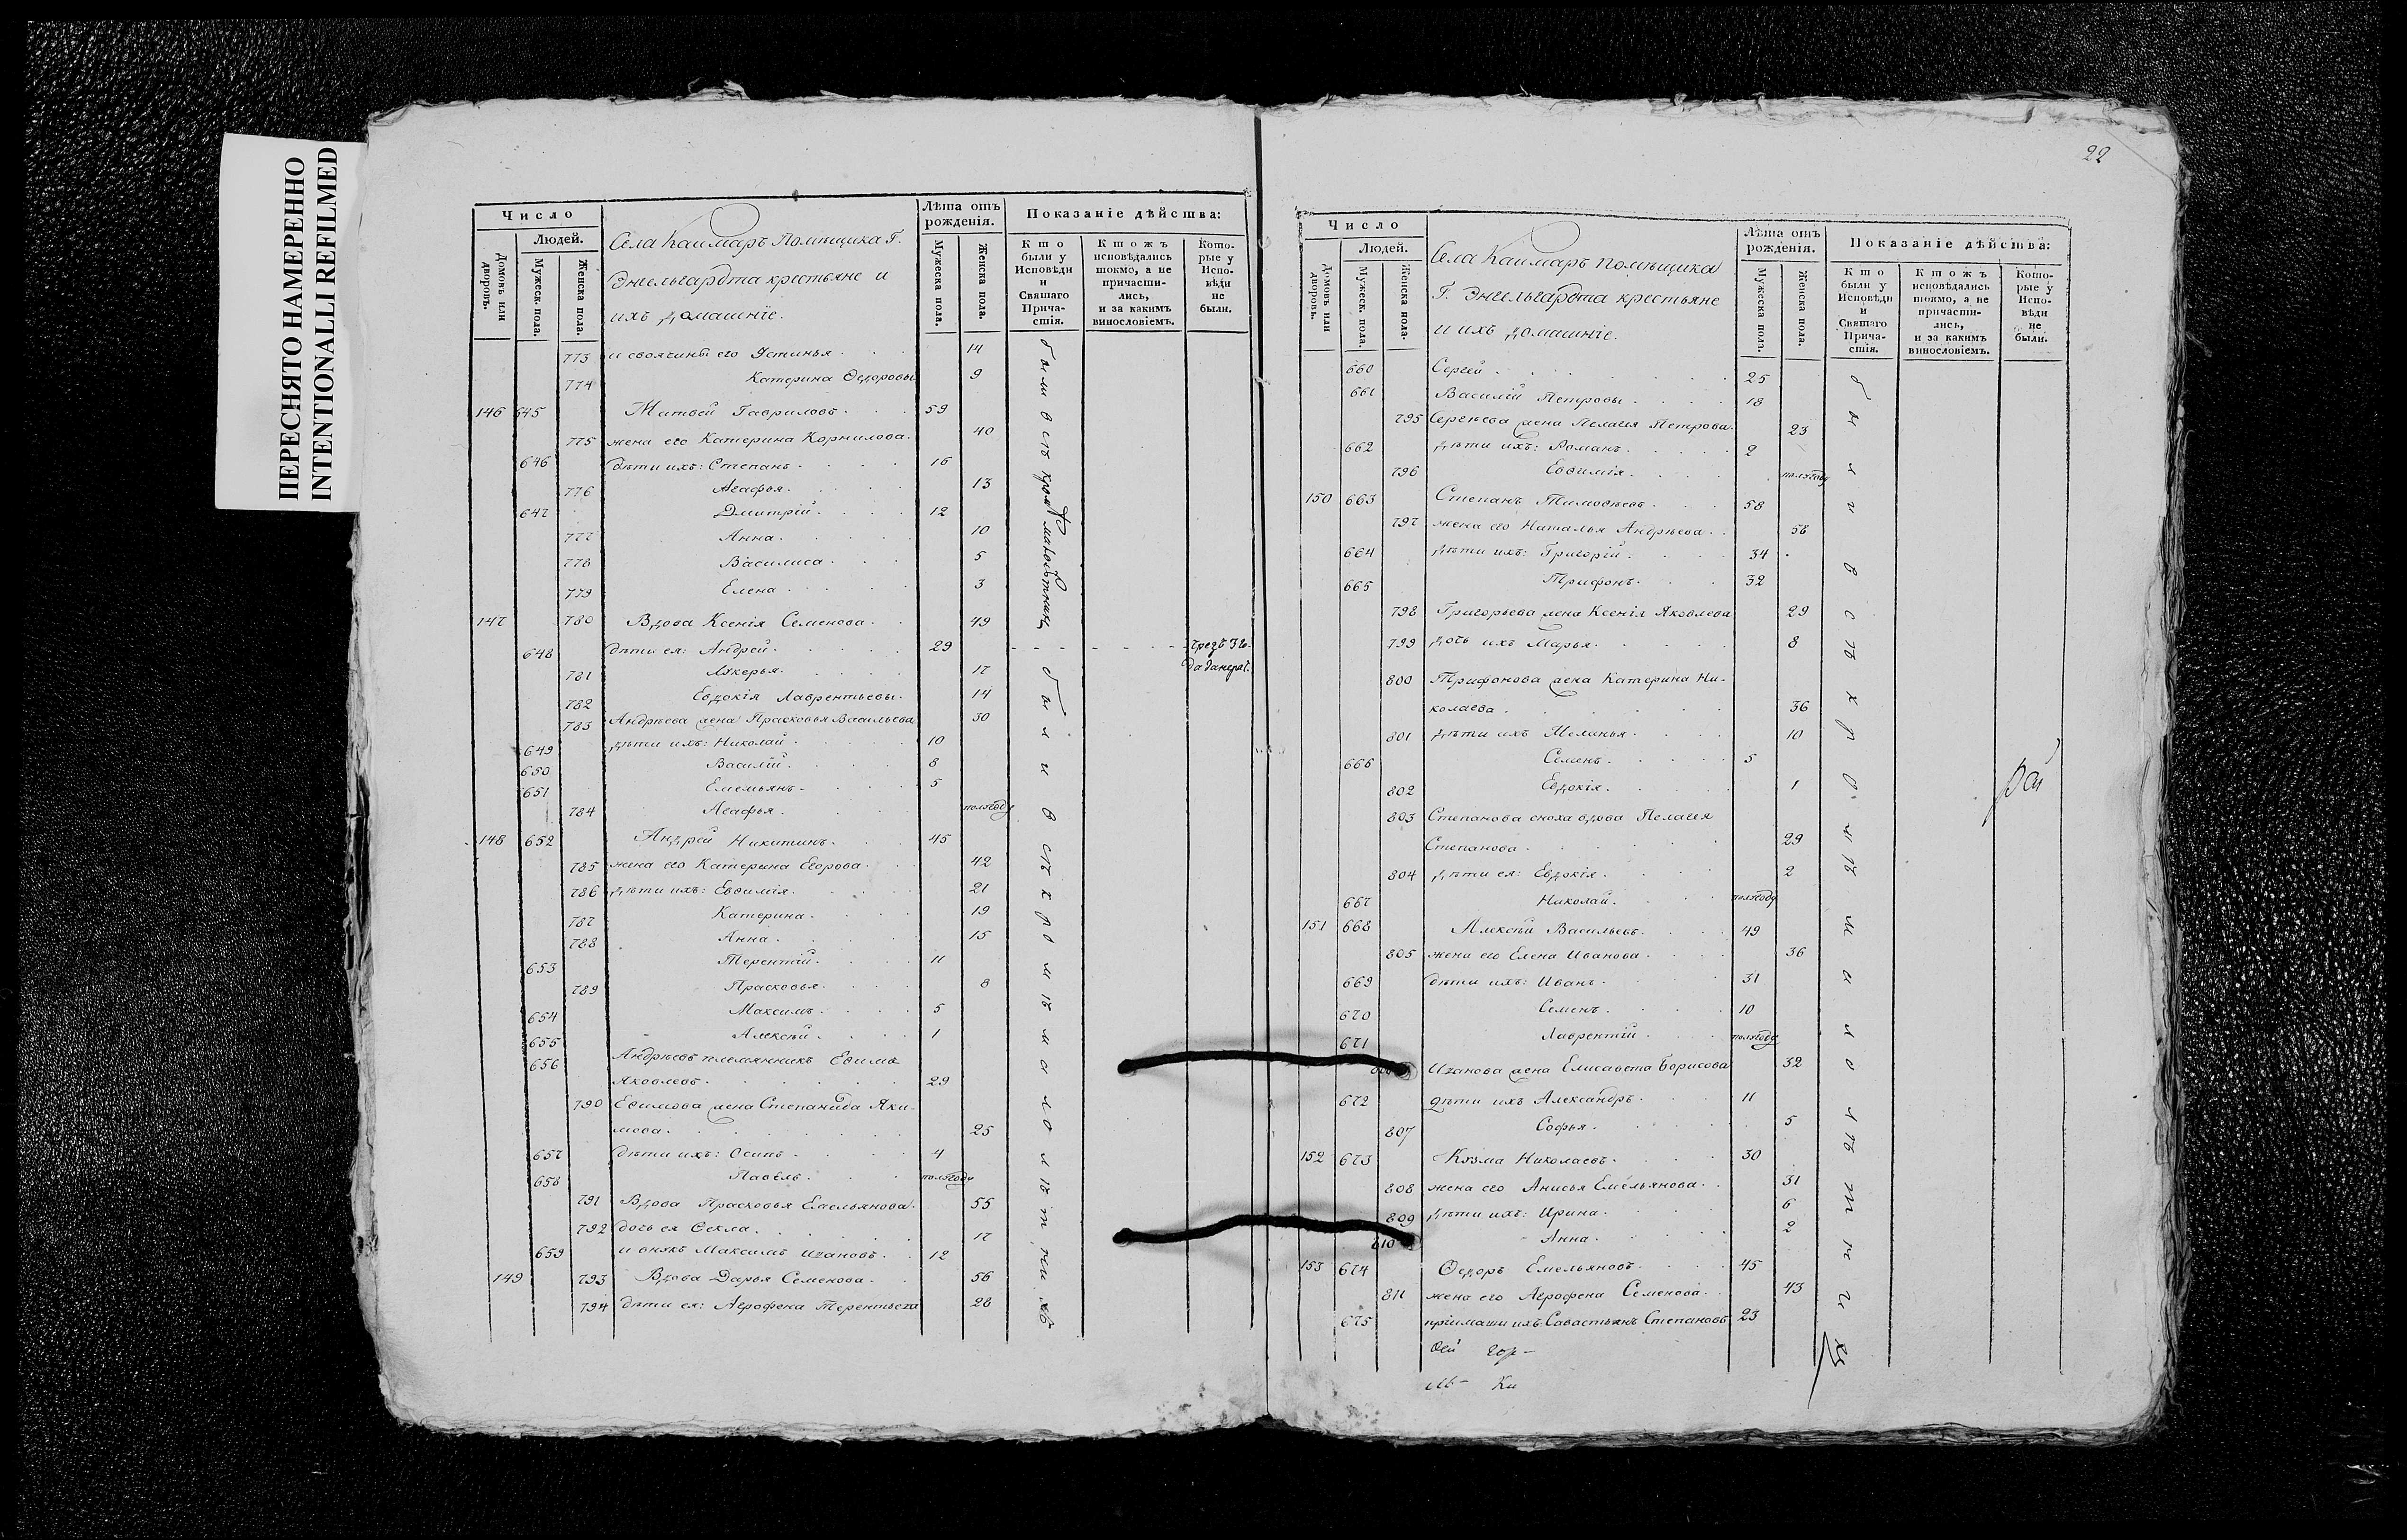 ПЕРЕСНЯТО НАМЕРЕННО
INTENTIONALLI REFILMED
22
Число
Людей.
Домовъ или дворовъ.
Мужеск. пола.
Женска пола.
Села Каймаръ Помѣщика Г.
Энгельгардта крестьяне и
ихъ домашніе.
Лѣта отъ рожденія.
Мужеска пола.
Женска пола.
Показаніе дѣйства:
Кто были у Исповѣди и Святаго Причастія.
Ктожъ исповѣдались токмо, а не причастились, и за какимъ винословіемъ.
Которые у Исповѣди не были.
773 и своячины его Устинья 14
774 Катерина Ѳедоровы 9
146 645 Матвей Гавриловъ 59
775 жена его Катерина Корнилова 40
646 дѣти ихъ: Степанъ 16
776 Агафья 13
647 Дмитрій 12
777 Анна 10
778 Василиса 5
779 Елена 3
были всѣ кромѣ малолѣтнихъ
147 780 Вдова Ксенія Семенова 49
648 дѣти ея: Андрей 29
781 Лукерья 17
782 Евдокія Лаврентьевы 14
783 Андрѣева жена Прасковья Васильева 30
649 дѣти ихъ: Николай 10
650 Василій 8
651 Емельянъ 5
784 Агафья полугоду
148 652 Андрей Никитинъ 45
785 жена его Катерина Егорова 42
786 дѣти ихъ: Евѳимія 21
787 Катерина 19
788 Анна 15
653 Терентій 11
789 Прасковья 8
654 Максимъ 5
655 Алексѣй 1
656 Андрѣевъ племянникъ Еѳимъ
Яковлевъ 29
790 Еѳимова жена Степанида Яки-
мова 25
657 дѣти ихъ: Осипъ 4
658 Павелъ полугоду
791 Вдова Прасковья Емельянова 55
792 дочь ея Ѳекла 17
659 и внукъ Максимъ Ивановъ 12
149 793 Вдова Дарья Семенова 56
794 дѣти ея: Агрофена Терентьева 28
были всѣ кромѣ малолѣтнихъ
Число
Людей.
Домовъ или дворовъ.
Мужеск. пола.
Женска пола.
Села Каймаръ помѣщика
Г. Энгельгардта крестьяне
и ихъ домашніе.
Лѣта отъ рожденія.
Мужеска пола.
Женска пола.
Показаніе дѣйства:
Кто были у Исповѣди и Святаго Причастія.
Ктожъ исповѣдались токмо, а не причастились, и за какимъ винословіемъ.
Которые у Исповѣди не были.
660 Сергей 25
661 Василій Петровы 18
795 Сергѣева жена Пелагія Петрова 23
662 дѣти ихъ: Романъ 2
796 Евѳимія полугоду
150 663 Степанъ Тимоѳѣевъ 58
797 жена его Наталья Андрѣева 58
664 дѣти ихъ: Григорій 34
665 Трифонъ 32
798 Григорьева жена Ксенія Яковлева 29
799 дочь ихъ Марья 8
800 Трифонова жена Катерина Ни-
колаева 36
801 дѣти ихъ Меланья 10
666 Семенъ 5
802 Евдокія 1
803 Степанова сноха вдова Пелагея
Степанова 29
804 дѣти ея: Евдокія 2
667 Николай полугоду
151 668 Алексѣй Васильевъ 49
805 жена его Елена Иванова 36
669 дѣти ихъ: Иванъ 31
670 Семенъ 10
671 Лаврентій полугоду
Иванова жена Елисавета Борисова 32
672 дѣти ихъ Александръ 11
807 Софья 5
152 673 Кузма Николаевъ 30
808 жена его Анисья Емельянова 31
809 дѣти ихъ: Ирина 6
810 Анна 2
153 674 Ѳедоръ Емельяновъ 45
811 жена его Агрофена Семенова 43
675 пріймашъ ихъ Савастьянъ Степановъ 23
были всѣ кромѣ малолѣтнихъ
рей